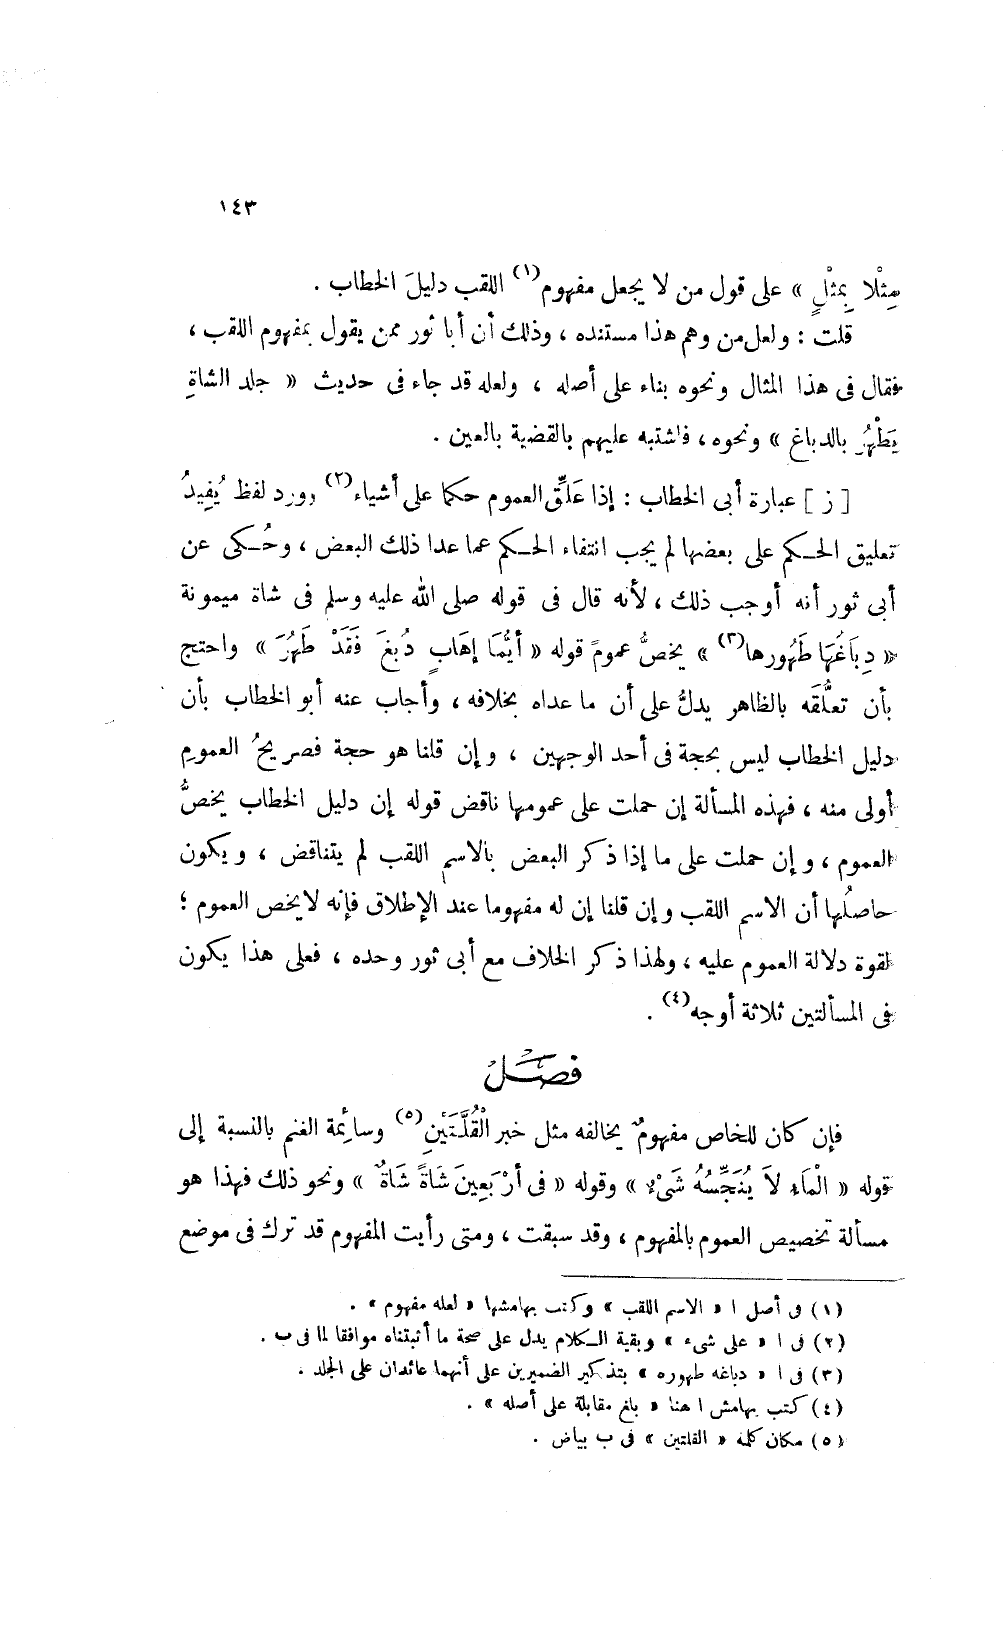 ١٤٣
مِثْلا بِمِثْلٍ » على قول من لا يجعل مفهوم(١) اللقب دليلَ الخطاب .
قلت : ولعل من وهم هذا مستنده ، وذلك أن أبا ثور ممن يقول بمفهوم اللقب ،
فقال فى هذا المثال ونحوه بناء على أصله ، ولعله قد جاء فى حديث « جلد الشاةِ
يَطْهُرُ بالدباغ » ونحوه ، فاشتبه عليهم بالقضية بالعين .
[ ز ] عبارة أبى الخطاب : إذا عَلَّقَ العموم حكما على أشياء(٢) وورد لفظ يُفِيدُ
تعليق الحكم على بعضها لم يجب انتفاء الحكم عما عدا ذلك البعض ، وحُكى عن
أبى ثور أنه أوجب ذلك ، لأنه قال فى قوله صلى الله عليه وسلم فى شاة ميمونة
« دِبَاغُهَا طَهُورها(٣) » يخصُّ عمومَ قوله « أيُّمَا إهَابٍ دُبِغَ فَقَدْ طَهُرَ » واحتج
بأن تعلُّقَه بالظاهر يدلُّ على أن ما عداه بخلافه ، وأجاب عنه أبو الخطاب بأن
دليل الخطاب ليس بحجة فى أحد الوجهين ، وإن قلنا هو حجة فصريحُ العمومِ
أولى منه ، فهذه المسألة إن حملت على عمومها ناقض قوله إن دليل الخطاب يخصُّ
العموم ، وإن حملت على ما إذا ذكر البعض بالاسم اللقب لم يتناقض ، ويكون
حاصلُها أن الاسم اللقب وإن قلنا إن له مفهوما عند الإطلاق فإنه لا يخص العموم ؛
لقوة دلالة العموم عليه ، ولهذا ذكر الخلاف مع أبى ثور وحده ، فعلى هذا يكون
فى المسألتين ثلاثة أوجه(٤) .
فصل
فإن كان للخاص مفهومٌ يخالفه مثل خبر الْقُلَّتَيْنِ(٥) وسائمة الغنم بالنسبة إلى
قوله « الْمَاء لاَ يُنَجِّسُهُ شَىْء » وقوله « فى أرْبَعِينَ شَاةً شَاةٌ » ونحو ذلك فهذا هو
مسألة تخصيص العموم بالمفهوم ، وقد سبقت ، ومتى رأيت المفهوم قد ترك فى موضع
(١) فى أصل ا « الاسم اللقب » وكتب بهامشها « لعله مفهوم » .
(٢) فى ا « على شىء » وبقية الكلام يدل على صحة ما أثبتناه موافقا لما فى ب .
(٣) فى ا « دباغه طهوره » بتذكير الضميرين على أنهما عائدان على الجلد .
(٤) كتب بهامش ا هنا « بلغ مقابلة على أصله » .
(٥) مكان كلمة « القلتين » فى ب بياض .